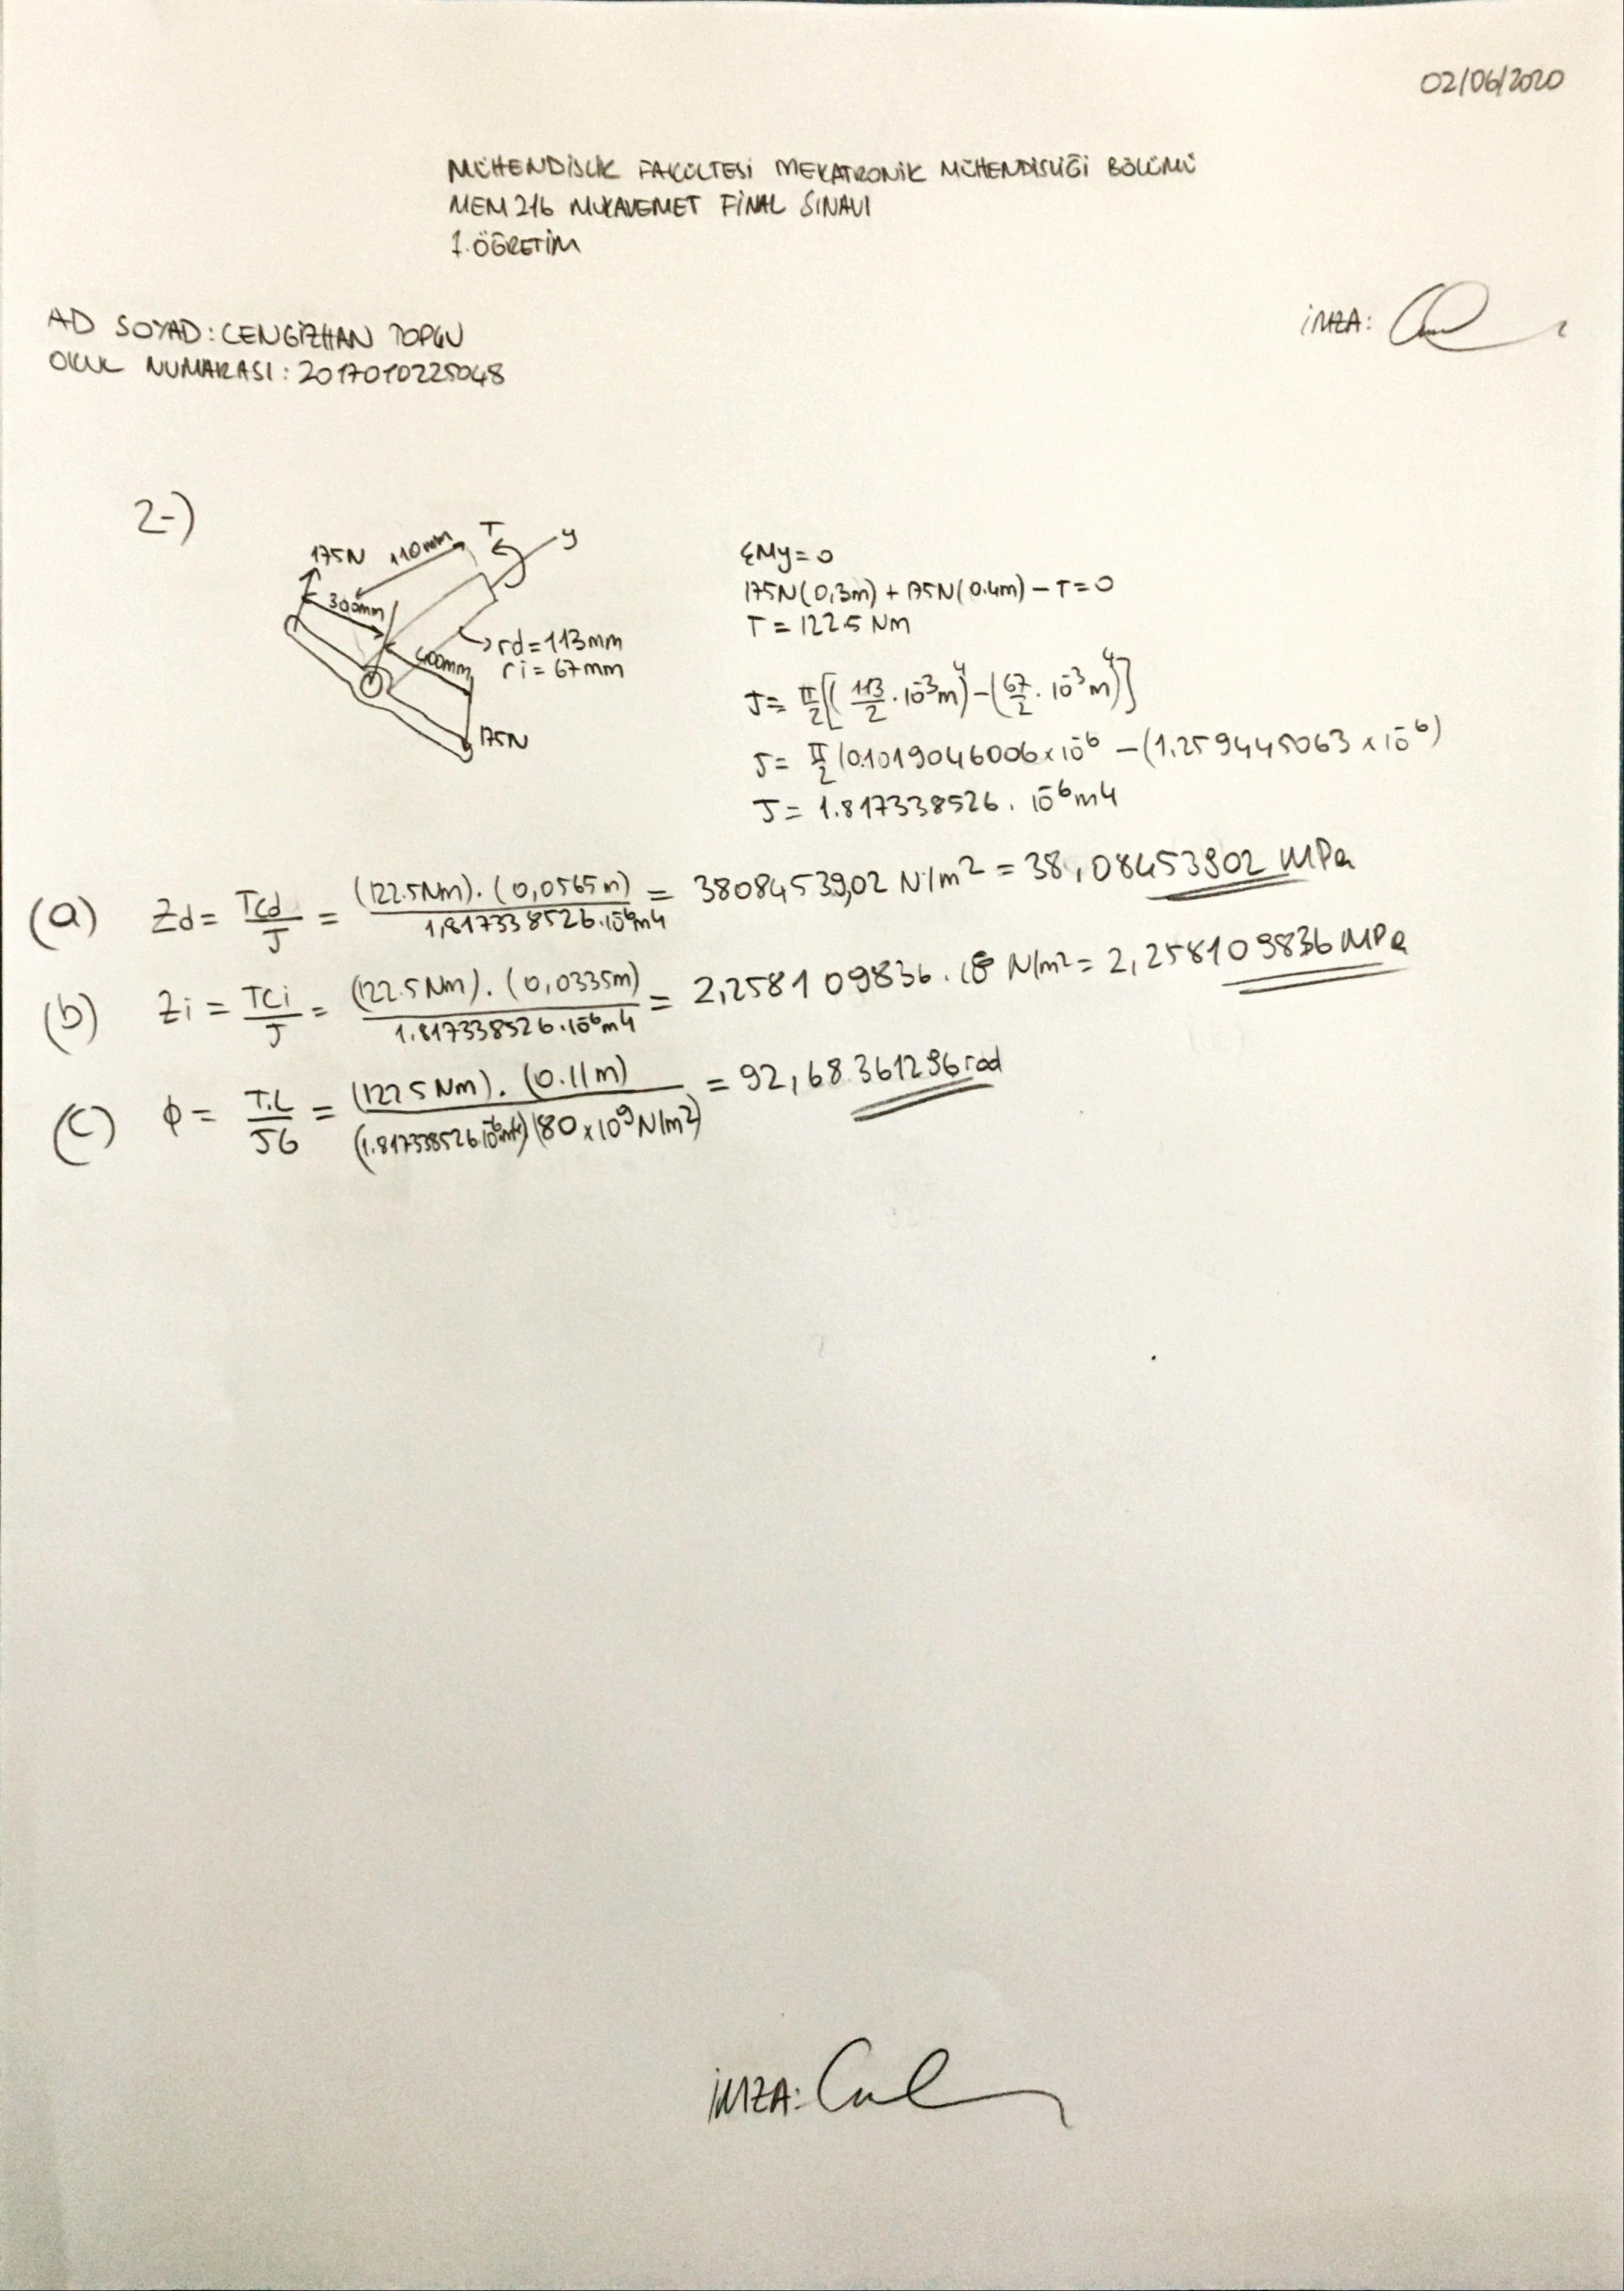 02/06/2020
MÜHENDİSLİK FAKÜLTESİ MEKATRONİK MÜHENDİSLİĞİ BÖLÜMÜ
MEM 216 MUKAVEMET FİNAL SINAVI
1. ÖĞRETİM
AD SOYAD: CENGİZHAN TOPÇU
OKUL NUMARASI: 2017010225048
İMZA:
2-)
175N 110mm T y
300mm
400mm
rd=113mm
ri=67mm
175N
ΣMy=0
175N(0,3m)+175N(0.4m)-T=0
T=122.5 Nm
J= π/2[(113/2 · 10^-3 m)^4 - (67/2 · 10^-3 m)^4]
J= π/2 (0.1019046006x10^-6 - (1.259445063 x 10^-6)
J= 1.817338526. 10^-6 m4
(a) Zd= Tcd/J = (122.5Nm).(0,0565m)/1,817338526.10^-6 m4 = 38084539,02 N/m² = 38,08453902 MPa
(b) Zi = Tci/J = (122.5Nm).(0,0335m)/1.817338526.10^-6 m4 = 2,258109836.10^6 N/m² = 2,258109836 MPa
(c) φ= T.L/JG = (122.5 Nm).(0.11m)/(1.817338526.10^-6 m4)(80x10^9 N/m²) = 92,68361296 rad
İMZA: